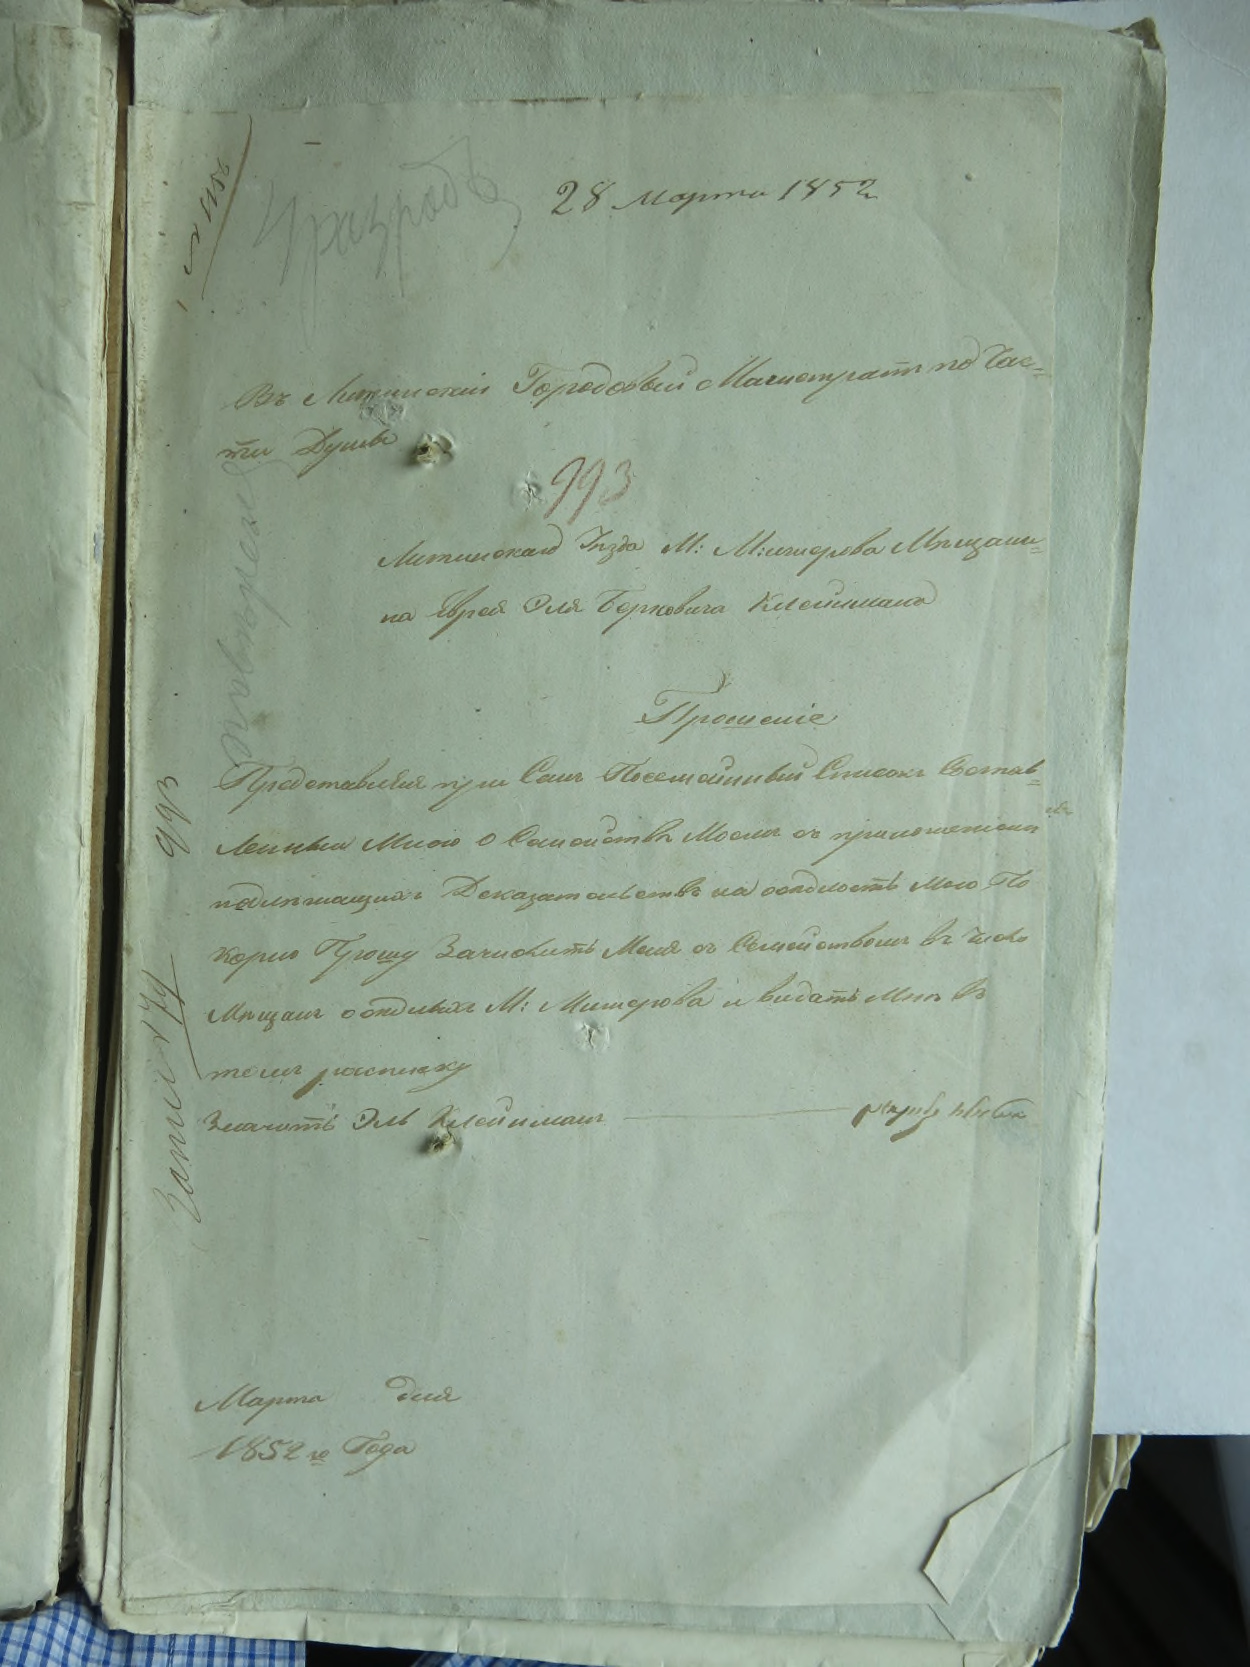 Ч разрядъ
28 Марта 1852
Въ Литинскій Городовый Магистратъ по Час=
ти Думы
993
Литинскаго Уѣзда М: Межерова Мѣщани=
на Еврея Эля Берковича Клеймана
Прошеніе
Представляя при Семъ Посемейный Списокъ Состав=
ленный Мною о Семействѣ Моемъ съ приложеніемъ
надлежащихъ Доказательствъ на осѣдлость Мою По
корно Прошу Зачислить Меня съ Семействомъ въ Число
Мѣщанъ осѣдлыхъ М: Межерова и видать Мнѣ въ
томъ росписку
Значитъ Эль Клейманъ
993
Марта дня
1852го Года